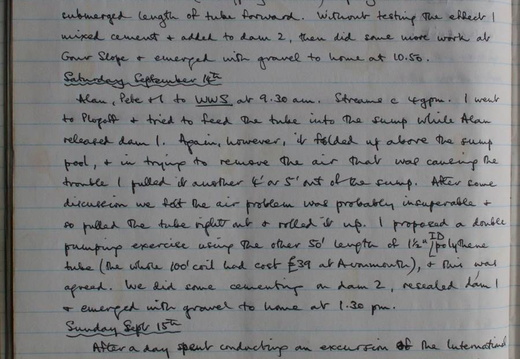 submerged length of tube forward. Without testing the effect I
mixed cement & added to dam 2, then did some more work at
Gour Slope & emerged with gravel to home at 10.50.
Saturday September 14th
Alan, Pete & I to WWS at 9.30 am. Streams c 4gpm. I went
to Plogoff & tried to feed the tube into the sump while Alan
released dam 1. Again, however, it folded up above the sump
pool, & in trying to remove the air that was causing the
trouble I pulled it another 4' or 5' out of the sump. After some
discussion we felt the air problem was probably insuperable &
so pulled the tube right out & rolled it up. I proposed a double
pumping exercise using the other 50' length of 1½" ID polythene
tube (the whole 100' coil had cost £39 at Avonmouth), & this was
agreed. We did some cementing on dam 2, resealed dam 1
& emerged with gravel to home at 1.30 pm.
Sunday Sept 15th
After a day spent conducting an excursion of the International